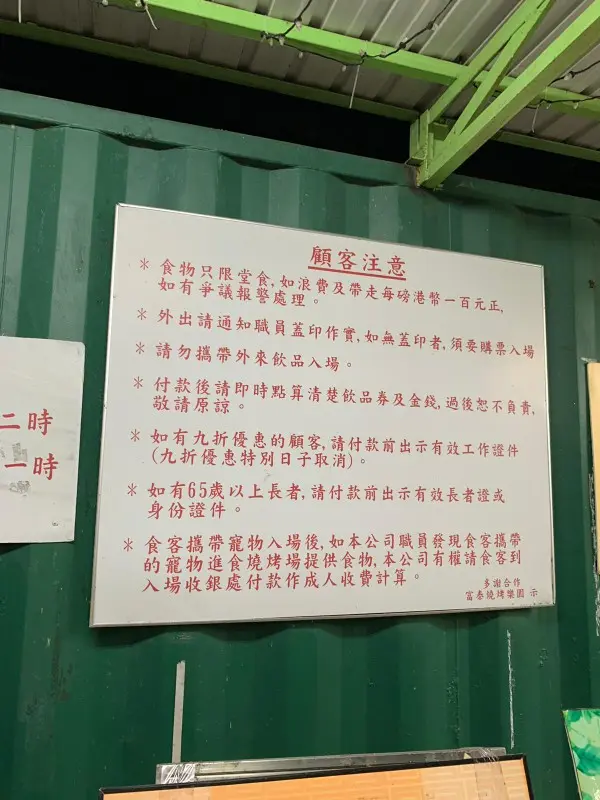 顧客注意
* 食物只限堂食,如浪費及帶走每磅港幣一百元正,
如有爭議報警處理。
* 外出請通知職員蓋印作實,如無蓋印者,須要購票入場
* 請勿攜帶外來飲品入場。
* 付款後請即時點算清楚飲品券及金錢,過後恕不負責,
敬請原諒。
* 如有九折優惠的顧客,請付款前出示有效工作證件
(九折優惠特別日子取消)。
* 如有65歲以上長者,請付款前出示有效長者證或
身份證件。
* 食客攜帶寵物入場後,如本公司職員發現食客攜帶
的寵物進食燒烤場提供食物,本公司有權請食客到
入場收銀處付款作成人收費計算。
多謝合作
富泰燒烤樂園 示
二時
一時